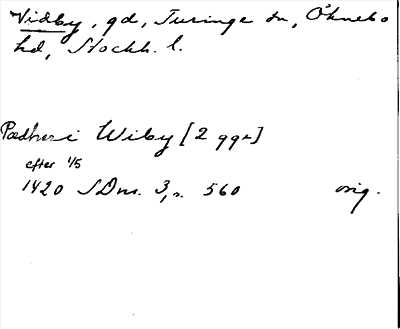 Vidby, gd, Turinge sn, Öknebo
hd, Stockh. l.
Pædheri Wiby [2 ggr]
efter 1/5
1420 SDns. 3, s. 560 orig.